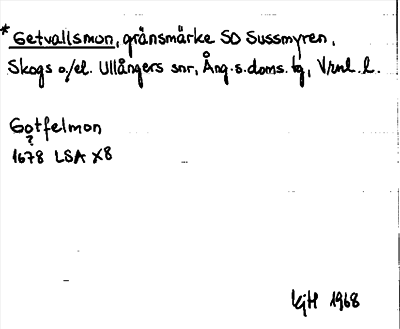 * Getvallsmon, gränsmärke SO Sussmyren,
Skogs o./el. Ullångers snr, Ång. s. doms. tg, Vrnl. l.
Gotfelmon
?
1678 LSA X8
KjH 1968